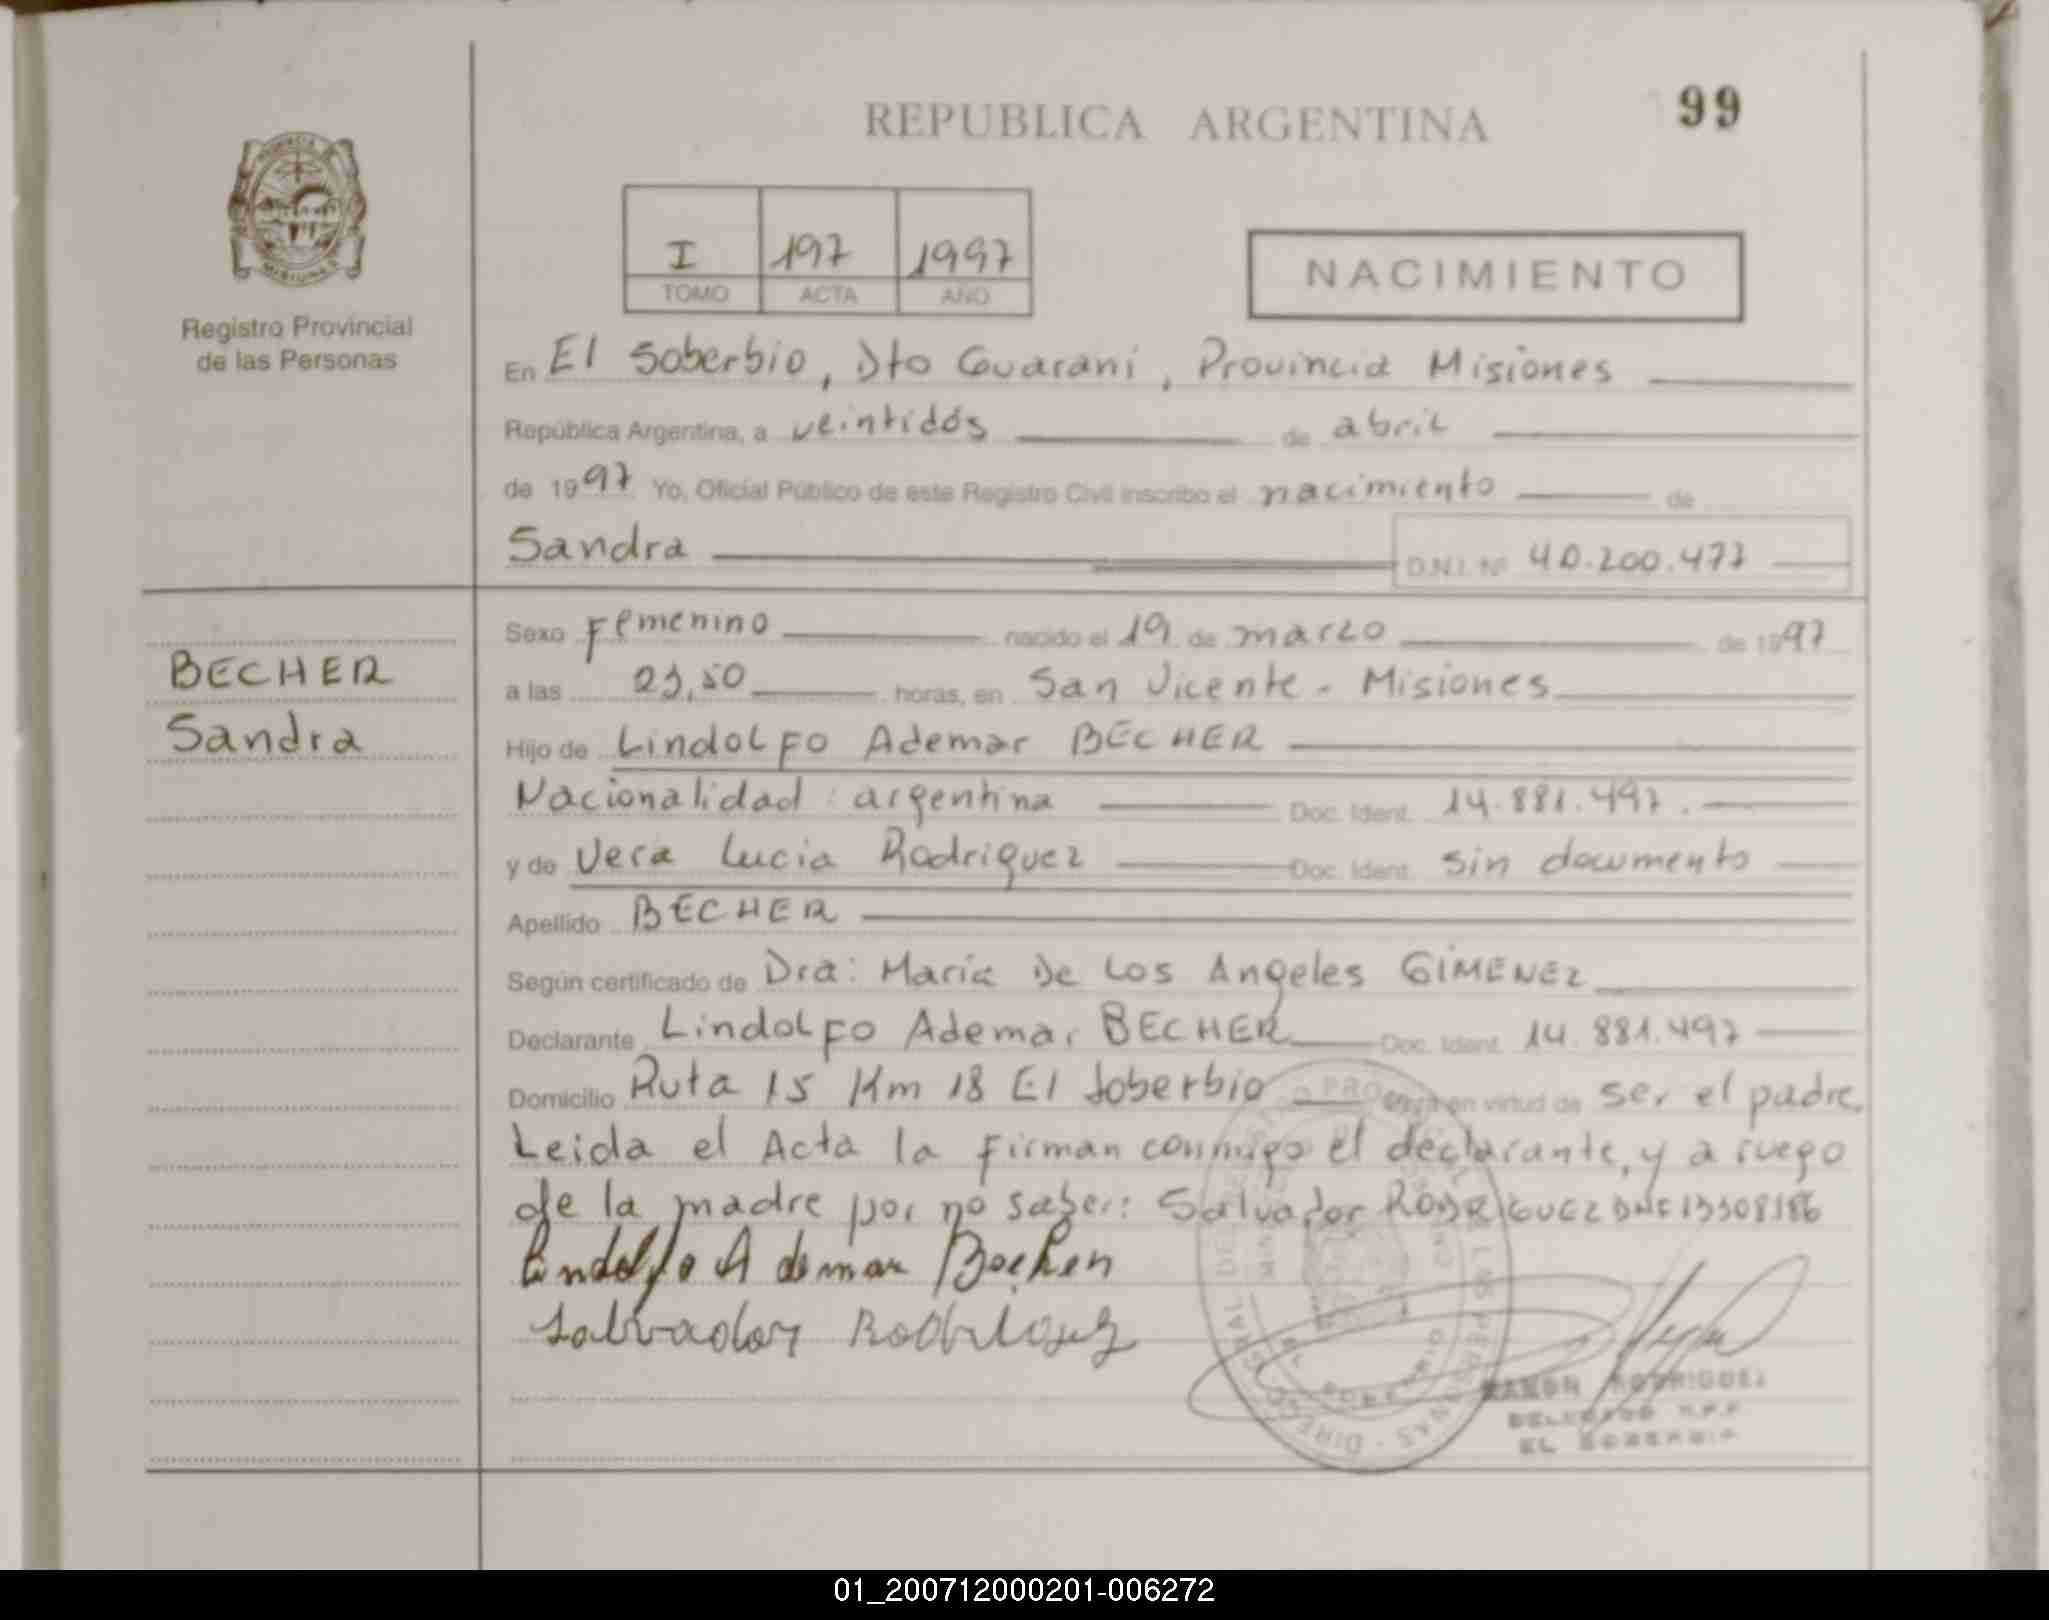 REPUBLICA ARGENTINA
99
PROVINCIA
MISIONES
Registro Provincial
de las Personas
I 197 1997
TOMO ACTA AÑO
NACIMIENTO
En El Soberbio, Dto Guarani, Provincia Misiones
República Argentina, a veintidós de abril
de 1997 Yo, Oficial Público de este Registro Civil inscribo el nacimiento de
Sandra D.N.I. Nº 40.200.477
BECHER
Sandra
Sexo Femenino nacido el 19 de marzo de 1997
a las 23,50 horas, en San Vicente - Misiones
Hijo de Lindolfo Ademar BECHER
Nacionalidad: argentina Doc. Ident. 14.881.497.
y de Vera Lucia Rodriguez Doc. Ident. sin documento
Apellido BECHER
Según certificado de Dra: Maria De Los Angeles GIMENEZ
Declarante Lindolfo Ademar BECHER Doc. Ident. 14.881.497
Domicilio Ruta 15 Km 18 El Soberbio en virtud de ser el padre.
Leida el Acta la Firman conmigo el declarante, y a ruego
de la madre por no saber: Salvador RODRIGUEZ DNI 13308186
Lindolfo Ademar Becher
Salvador Rodriguez
RAMON RODRIGUEZ
DELEGADO R.P.P.
EL SOBERBIO
01_200712000201-006272